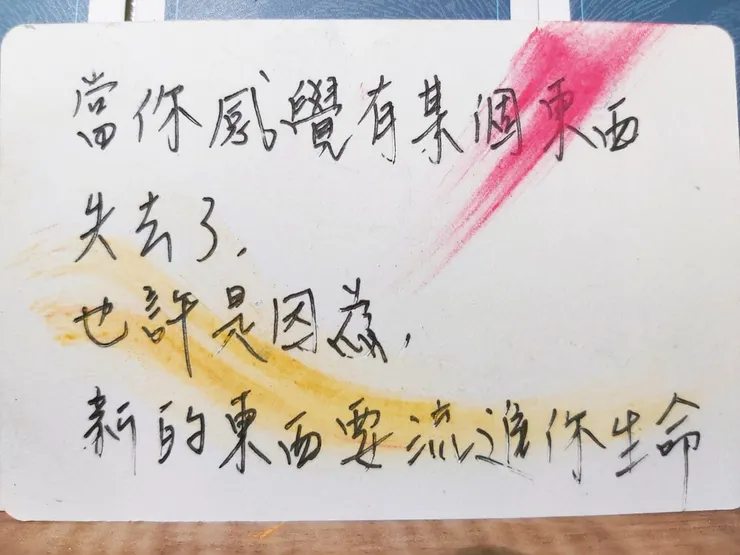 當你感覺有某個東西
失去了,
也許是因為,
新的東西要流進你生命